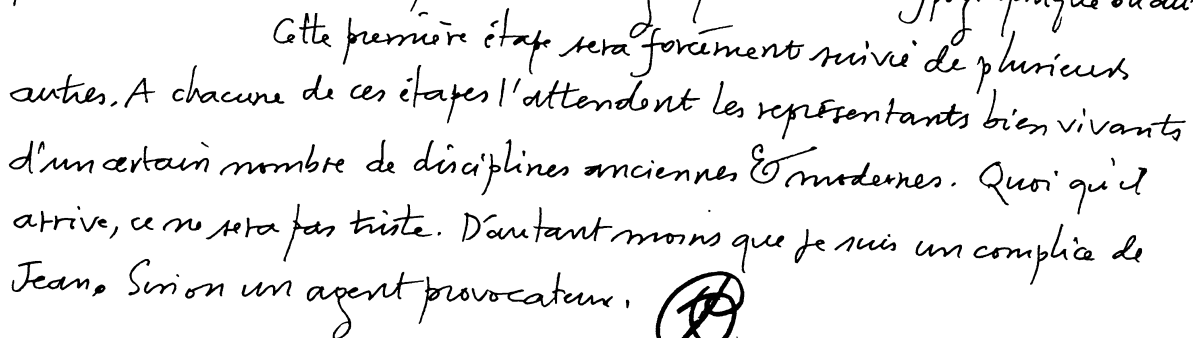 Cette première étape sera forcément suivie de plusieurs
autres. A chacune de ces étapes l'attendent les représentants bien vivants
d'un certain nombre de disciplines anciennes & modernes. Quoi qu'il
arrive, ce ne sera pas triste. D'autant moins que je suis un complice de
Jean. Sinon un agent provocateur.